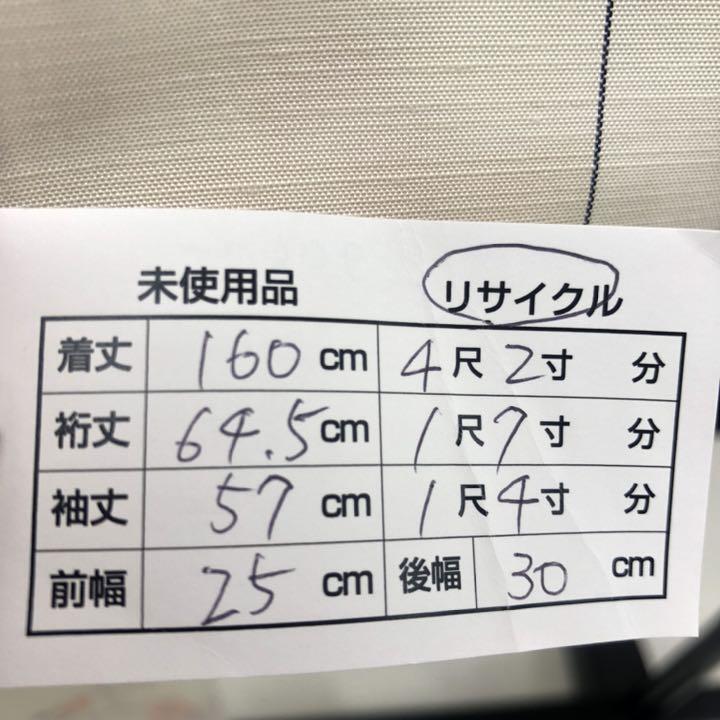 未使用品 リサイクル
着丈 160 cm 4 尺 2 寸 分
裄丈 64.5 cm 1 尺 7 寸 分
袖丈 57 cm 1 尺 4 寸 分
前幅 25 cm 後幅 30 cm